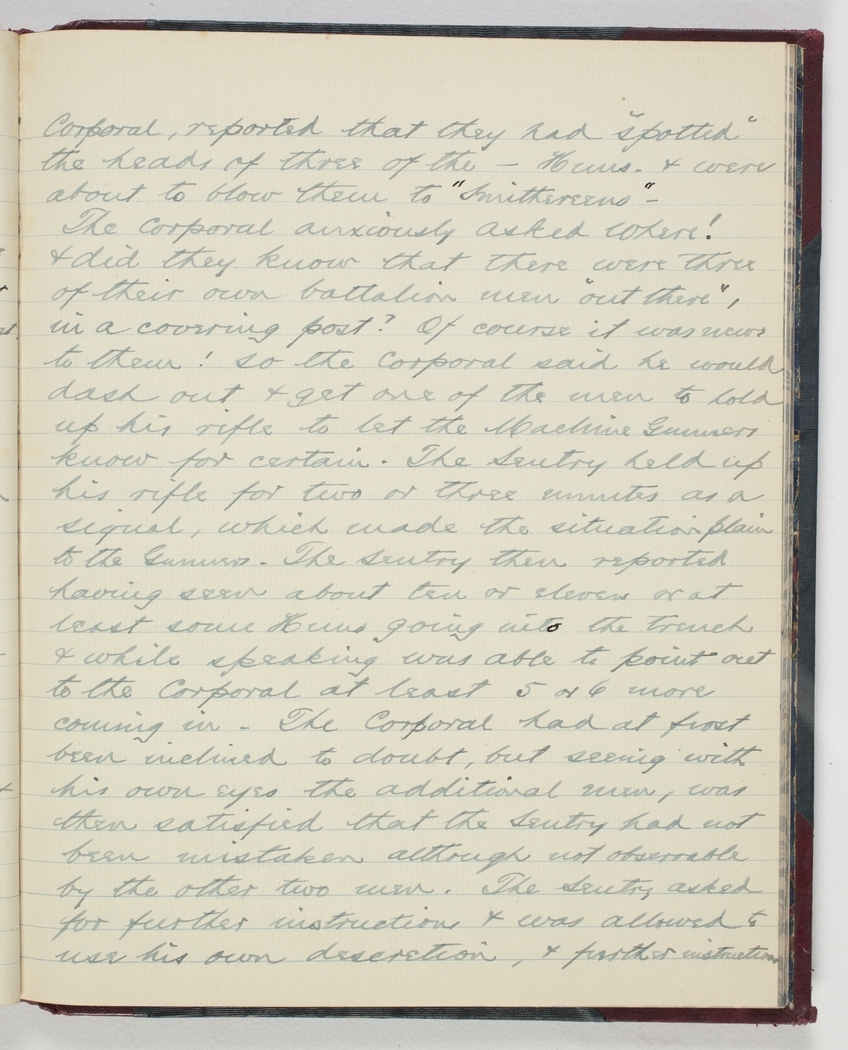 Corporal, reported that they had "spotted"
the heads of three of the – Huns. & were
about to blow them to "Smithereens" –
The Corporal anxiously asked where!
& did they know that there were three
of their own battalion men "out there",
in a covering post? Of course it was news
to them! so the Corporal said he would
dash out & get one of the men to hold
up his rifle to let the Machine Gunners
know for certain. The Sentry held up
his rifle for two or three minutes as a
signal, which made the situation plain
to the Gunners. The Sentry then reported
having seen about ten or eleven or at
least some Huns going into the trench
& while speaking was able to point out
to the Corporal at least 5 or 6 more
coming in – The Corporal had at first
been inclined to doubt, but seeing with
his own eyes the additional men, was
then satisfied that the Sentry had not
been mistaken although not observable
by the other two men. The Sentry asked
for further instructions & was allowed to
use his own descretion, & further instructions